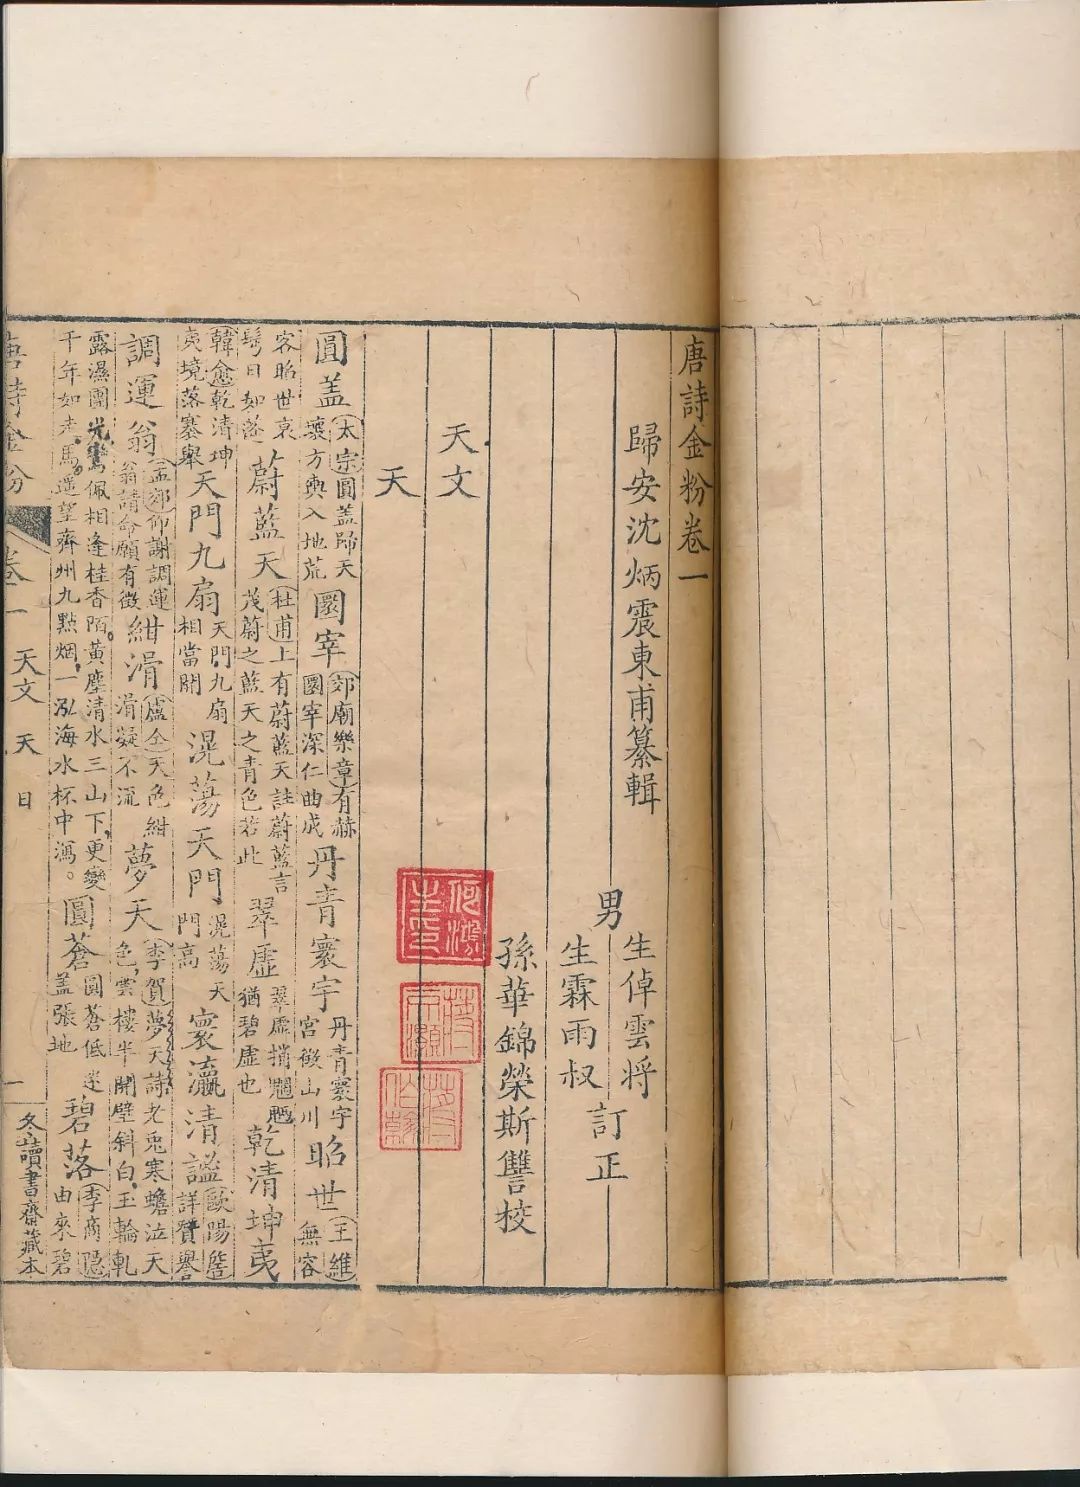 唐詩金粉卷一
歸安沈炳震東甫纂輯
男
生倬雲將
生霖雨叔
訂正
孫華錦榮斯讐校
天文
天
圓蓋
太宗圓蓋歸天
壤方輿入地荒
圜宰
郊廟樂章有赫
圜宰深仁曲成
丹青寰宇
丹青寰宇
宮徵山川
昭世
王維
無容
客昭世哀
髩日如落
蔚藍天
杜甫上有蔚藍天註蔚藍言
茂蔚之藍天之青色若此
翠虛
翠虛捎魍魎
猶碧虛也
乾清坤夷
韓愈乾清坤
夷境落褰舉
天門九扇
天門九扇
相當開
滉蕩天門
滉蕩天
門高
寰瀛清謐
歐陽詹
詳贊譽
調運翁
孟郊仰謝調運
翁請命願有徵
紺滑
盧仝天色紺
滑凝不流
夢天
李賀夢天詩老兎寒蟾泣天
色雲樓半開壁斜白玉輪軋
露濕團光鸞佩相逢桂香陌黃塵清水三山下更變
千年如走馬遥望齊州九點烟一泓海水杯中瀉
圓蒼
圓蒼低迷
蓋張地
碧落
李商隱
由來碧
唐詩金粉
卷一
天文
天
日
一
冬讀書齋藏本